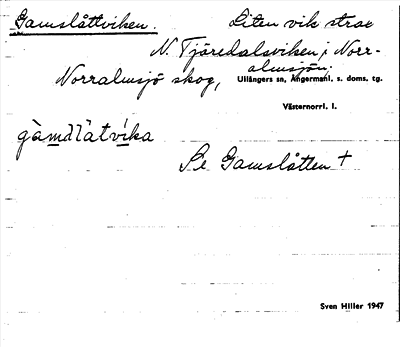 Gamslåttviken. Liten vik strax
N. Tjäredalsviken i Norr-
almsjön.
Norralmsjö skog, Ullångers sn, Ångermanl. s. doms. tg.
Västernorrl. l.
Se Gamslåtten +
Sven Hiller 1947